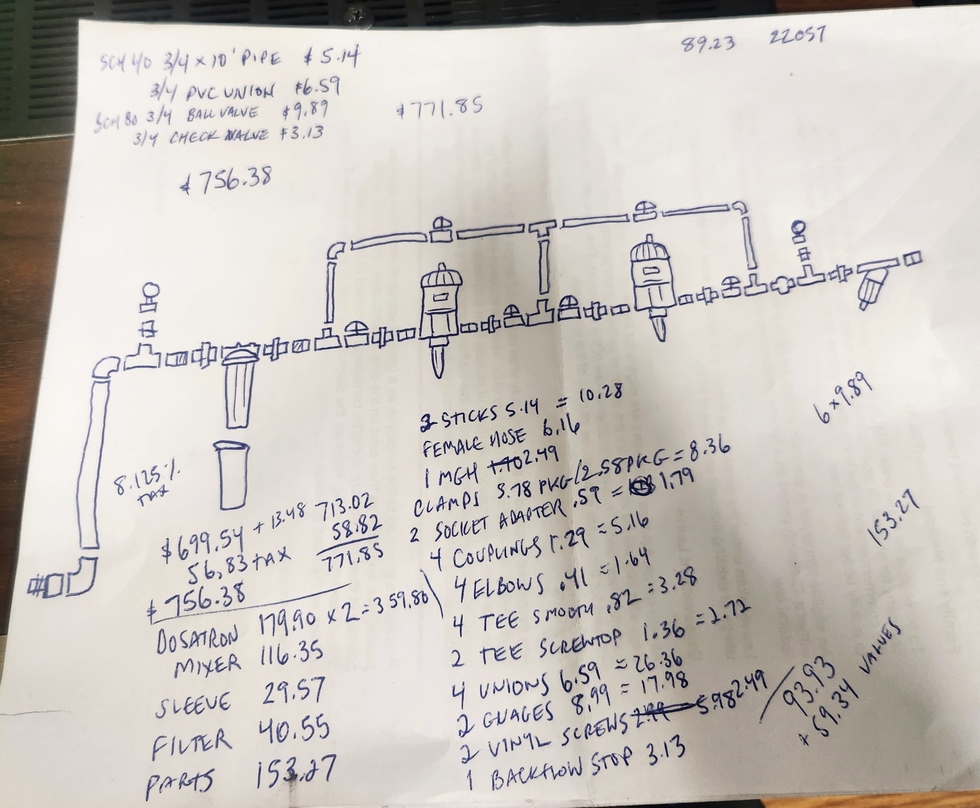 SCH 40 3/4 x 10' PIPE $5.14
3/4 PVC UNION $6.59
SCH 80 3/4 BALL VALVE $9.89
3/4 CHECK VALVE $3.13
$756.38
$771.85
89.23 22057
8.125%
TAX
$699.54 + 13.48 713.02
56,83 + TAX 58.82
$756.38 771.85
DOSATRON 179.90 x 2 = 359.80
MIXER 116.35
SLEEVE 29.57
FILTER 40.55
PARTS 153.27
2 STICKS 5.14 = 10.28
FEMALE HOSE 6.16
1 MGH 2.49
CLAMPS 5.78 PKG/2.58 PKG = 8.36
2 SOCKET ADAPTER .59 = 1.79
4 COUPLINGS 1.29 = 5.16
4 ELBOWS .41 = 1.64
4 TEE SMOOTH .82 = 3.28
2 TEE SCREWTOP 1.36 = 2.72
4 UNIONS 6.59 = 26.36
2 GUAGES 8.99 = 17.98
2 VINYL SCREWS 5.98 2.49
1 BACKFLOW STOP 3.13
6 x 9.89
153.27
93.93
+ 59.34 VALVES